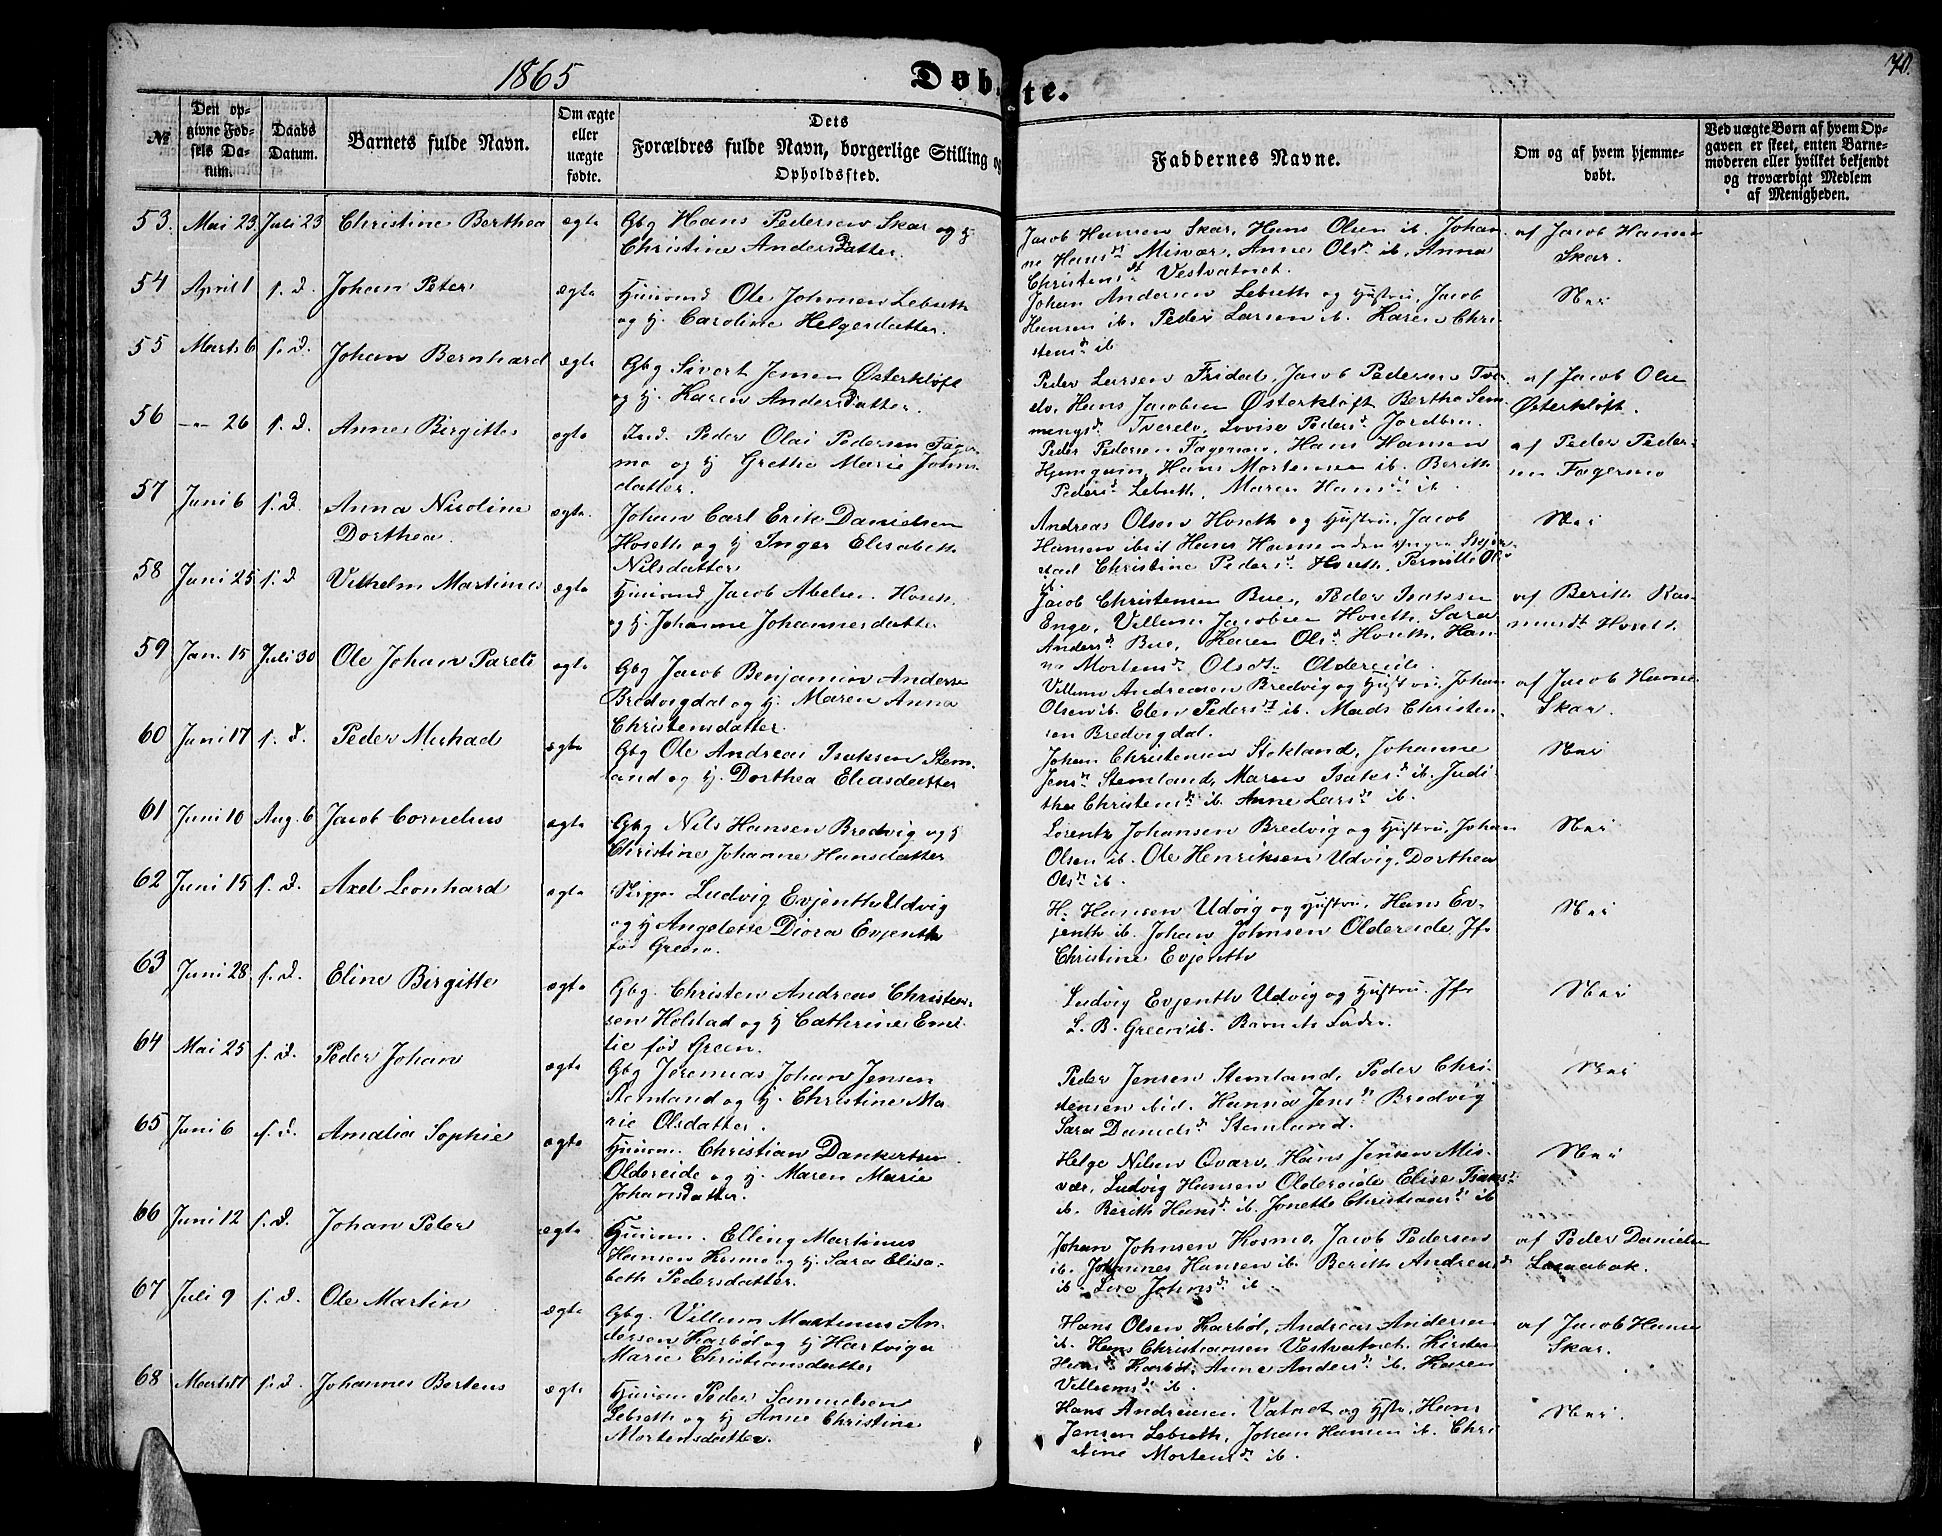 1865
Døbte.
70.
№
Den opgivne Fødsels Datum.
Daabs Datum.
Barnets fulde Navn.
Om ægte eller uægte fødte.
Dets Forældres fulde Navn, borgerlige Stilling og Opholdssted.
Faddernes Navne.
Om og af hvem hjemmedøbt.
Ved uægte Børn af hvem Opgaven er skeet, enten Barnemoderen eller hvilket bekjendt og troværdigt Medlem af Menigheden.
53. Mai 23. Juli 23 Christine Berthea ægte
Gbg Hans Pedersen Skar og hj
Christine AndersDatter.
Jacob Hansen Skar, Hans Olsen ib. Johan
ne Hansdr Misvær, Anne Olsdr ib. Anna
Christensdt Vestvatnet.
af Jacob Hansen
Skar.
54 April 1 s. d. Johan Peter ægte
Huusmd Ole Johnsen Lebseth
og hj. Caroline Helgesdatter.
Johan Andersen Lebseth og Hustru, Jacob
Hansen ib. Peder Larsen ib. Karen Chri-
stensdr ib
Nei
55 Marts 6 s. d. Johan Bernhard ægte
Gbg Sivert Jensen Østerkløft
og hj. Karen AndersDatter.
Peder Larsen Fridal, Jacob Pedersen Tve
relv, Hans Jacobsen Østerkløft Bertha Sem
mingsdr Tverelv, Lovise Pedersdr Jordbru.
af Jacob Olsen
Østerkløft.
56 -"- 26 s. d. Anne Birgitte ægte
Ind. Peder Olai Pedersen Fager
mo og hj Grethe Marie Johns
datter.
Peder Pedersen Fagermo, Hans Hansen
Hjemgam, Hans Mortensen ib. Berith
Pedersdr Lebseth, Maren Hansdr ib.
af Peder Peder-
sen Fagermo
57 Juni 6 s. d. Anna Nicoline
Dorthea. ægte.
Johan Carl Erik Danielsen
Hoseth og hj Inger Elisabeth
Nilsdatter
Andreas Olsen Hoseth og Hustru, Jacob
Hansen ibid Hans Hansen den yngre
Christine Pedersdr Hoseth, Pernille Ols
ib.
Nei
58 Juni 25 s. d Vilhelm Martinus ægte
Huusmd Jacob Abelsen Hoseth
og hj. Johanne Johannesdatter
Jacob Christensen Bue, Peder Isaksen
Enge, Villum Jacobsen Hoseth, Sara
Andersdr Bue, Karen Olsdr Hoseth, Han
na Mortensdr Olsdtr Oldereide.
af Berith Ras-
musdt Hoseth.
59 Jan. 15 Juli 30 Ole Johan Parelis ægte
Gbg Jacob Benjamin Andersen
Bredvigdal og hj. Maren Anna
Christensdatter
Villum Andreasen Bredvig og Hustru, Johan
Olsen ib. Elen Pedersdt ib. Mads Christen-
sen Bredvigdal.
af Jacob Hansen
Skar.
60 Juni 17 s. d. Peder Michad ægte
Gbg Ole Andreas Isaksen Stem-
land og hj. Dorthea Eliasdatter
Johan Christensen Stokland, Johanne
Jensdr Stemland, Maren Isaksdr ib. Judi
tha Christensdr ib. Anne Larsdr ib.
Nei
61 Juni 10 Aug. 6 Jacob Cornelius ægte
Gbg Nils Hansen Bredvig og hj
Christine Johanne Hansdatter
Lorentz Johansen Bredvig og Hustru, Johan
Olsen ib. Ole Henriksen Udvig, Dorthea
Olsdr ib.
Nei
62 Juni 15 s. d. Axel Leonhard ægte
Skipper Ludvig Evjenth Udvig
og hj Angelette Diora Evjenth
fød Green.
H. Hansen Udvig og Hustru, Hans Ev-
jenth ib. Johan Johnsen Oldereide, Jfr
Christine Evjenth
Nei
63 Juni 28 s. d. Eline Birgitte ægte
Gbg. Christen Andreas Christen-
sen Holstad og hj Cathrine Emi-
lie fød Green.
Ludvig Evjenth Udvig og Hustru. Jfr
L. B. Green ib. Barnets Fader.
Nei
64 Mai 25 s. d. Peder Johan ægte
Gbg Jeremias Johan Jensen
Stemland og hj. Christine Ma
rie Olsdatter.
Peder Jensen Stemland, Peder Chri-
stensen ibid. Hanna Jensdr Bredvig
Sara Danielsdr Stemland.
Nei
65 Juni 6 s. d. Amalia Sophie ægte
Huusm. Christian Dankertsen
Oldereide og hj. Maren Marie
JohansDatter.
Helge Nilsen Qvarv, Hans Jensen Mis-
vær, Ludvig Hansen Oldereide Elise Isaksdr
ib. Berith Hansdr ib. Jonette Christiansdr ib
Nei
66 Juni 12 s. d. Johan Peter ægte
Huusm. Elling Martinus
Hansen Kosmo og hj. Sara Elisa-
beth Pedersdatter.
Johan Johnsen Kosmo, Jacob Pedersen
ib. Johannes Hansen ib. Berith Andreasdr
ib. Lise Johnsdr ib.
af Peder Danielsen
67 Juli 9 s. d. Ole Martin ægte
Gbg. Villum Martinus An
dersen Karbøl og hj Hartviga
Marie Christiansdatter
Hans Olsen Karbøl, Andreas Andersen
ib. Hans Christiansen Vestvatnet. Kirsten
Hansdr Karbøl, Anne Andersdr ib. Karen
Villumsdr ib.
af Jacob Hansen
Skar.
68 Marts 17 s. d. Johannes Bertens ægte
Huusm Peder Samuelsen
Lebseth og hj Anne Christine
Mortensdatter.
Hans Andreasen Vatnet og Hstr, Hans
Jensen Lebseth, Johan Hansen ib. Chri
stine Mortensdr ib.
Nei